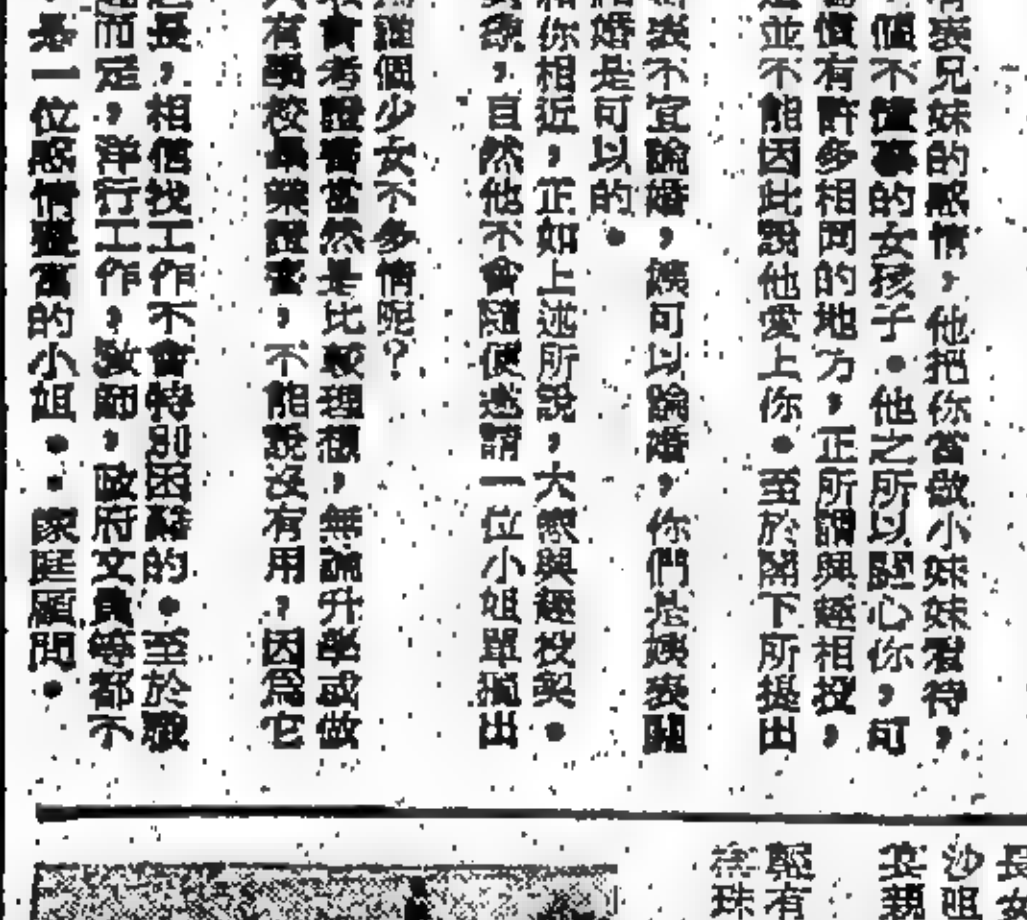 表兄妹的感情,他把你當做小妹妹看待,
個不懂事的女孩子。他之所以關心你,可
有許多相同的地方,正所謂興趣相投,
並不能因此說他愛上你。至於閣下所提出
表不宜論婚,姨可以論婚,你們是姨表關
婚是可以的。
你相近,正如上述所說,大家興趣投契。
,自然他不會隨便邀請一位小姐單獨出
個少女不多情呢?
會考證書當然是比較理想,無論升學或做
有學校畢業證書,不能說沒有用,因為它
長,相信找工作不會特別困難的。至於職
而定,洋行工作,教師,政府文員等都不
是一位感情豐富的小姐。:家庭顧問。
長女
沙
親
有
珠